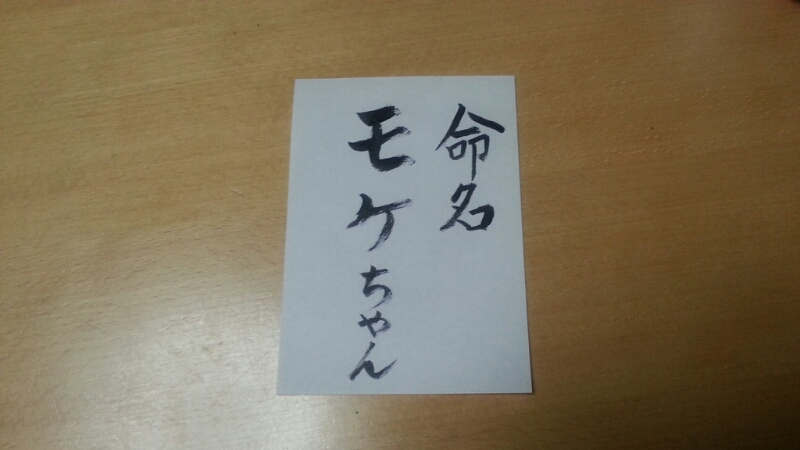 命名
モケちゃん